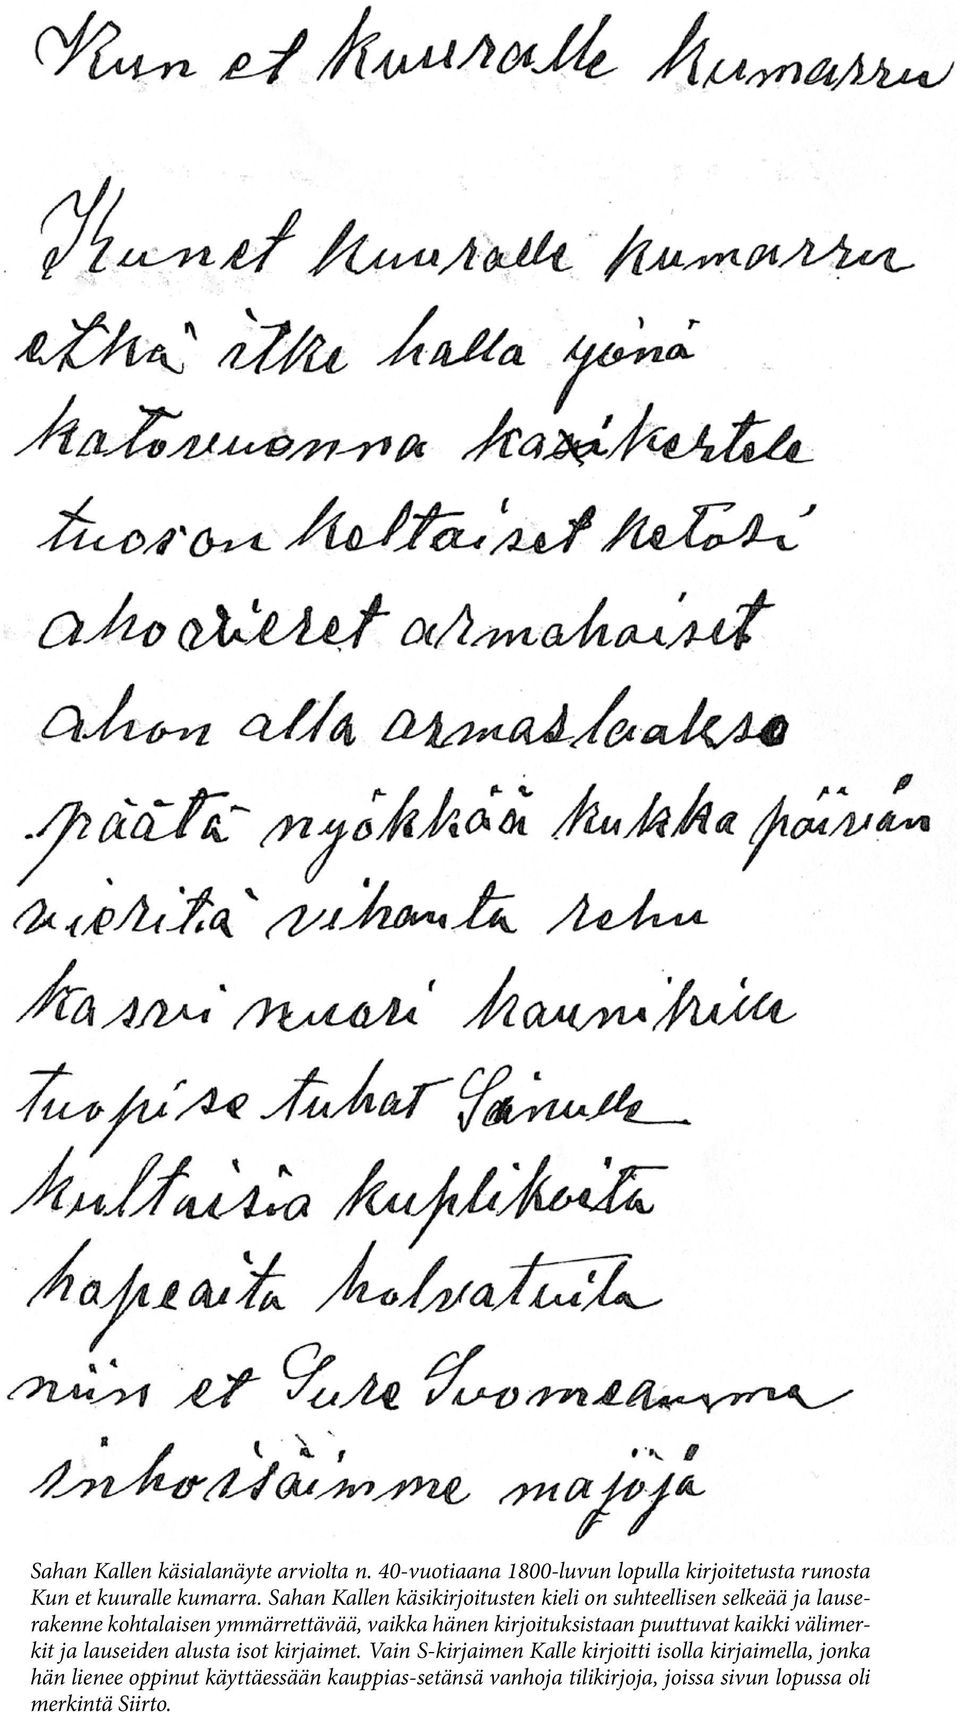 Kun et kuuralle kumarru
Kunet kuuralle kumarru
etkä itke halla yönä
katovuonna kaxikertele
tuos on keltaiset ketosi
aho vieret armahaiset
ahon alla armas laakso
päätä nyökkää kukka päivän
vieritä vihanta rehu
kasvi nuori kaunihille
tuopi se tuhat Sinulle
kultaisia kuplikoita
hopeaita holvatuita
niin et Sure Suomeamme
inhoisäimme majoja
Sahan Kallen käsialanäyte arviolta n. 40-vuotiaana 1800-luvun lopulla kirjoitetusta runosta
Kun et kuuralle kumarra. Sahan Kallen käsikirjoitusten kieli on suhteellisen selkeää ja lause-
rakenne kohtalaisen ymmärrettävää, vaikka hänen kirjoituksistaan puuttuvat kaikki välimer-
kit ja lauseiden alusta isot kirjaimet. Vain S-kirjaimen Kalle kirjoitti isolla kirjaimella, jonka
hän lienee oppinut käyttäessään kauppias-setänsä vanhoja tilikirjoja, joissa sivun lopussa oli
merkintä Siirto.